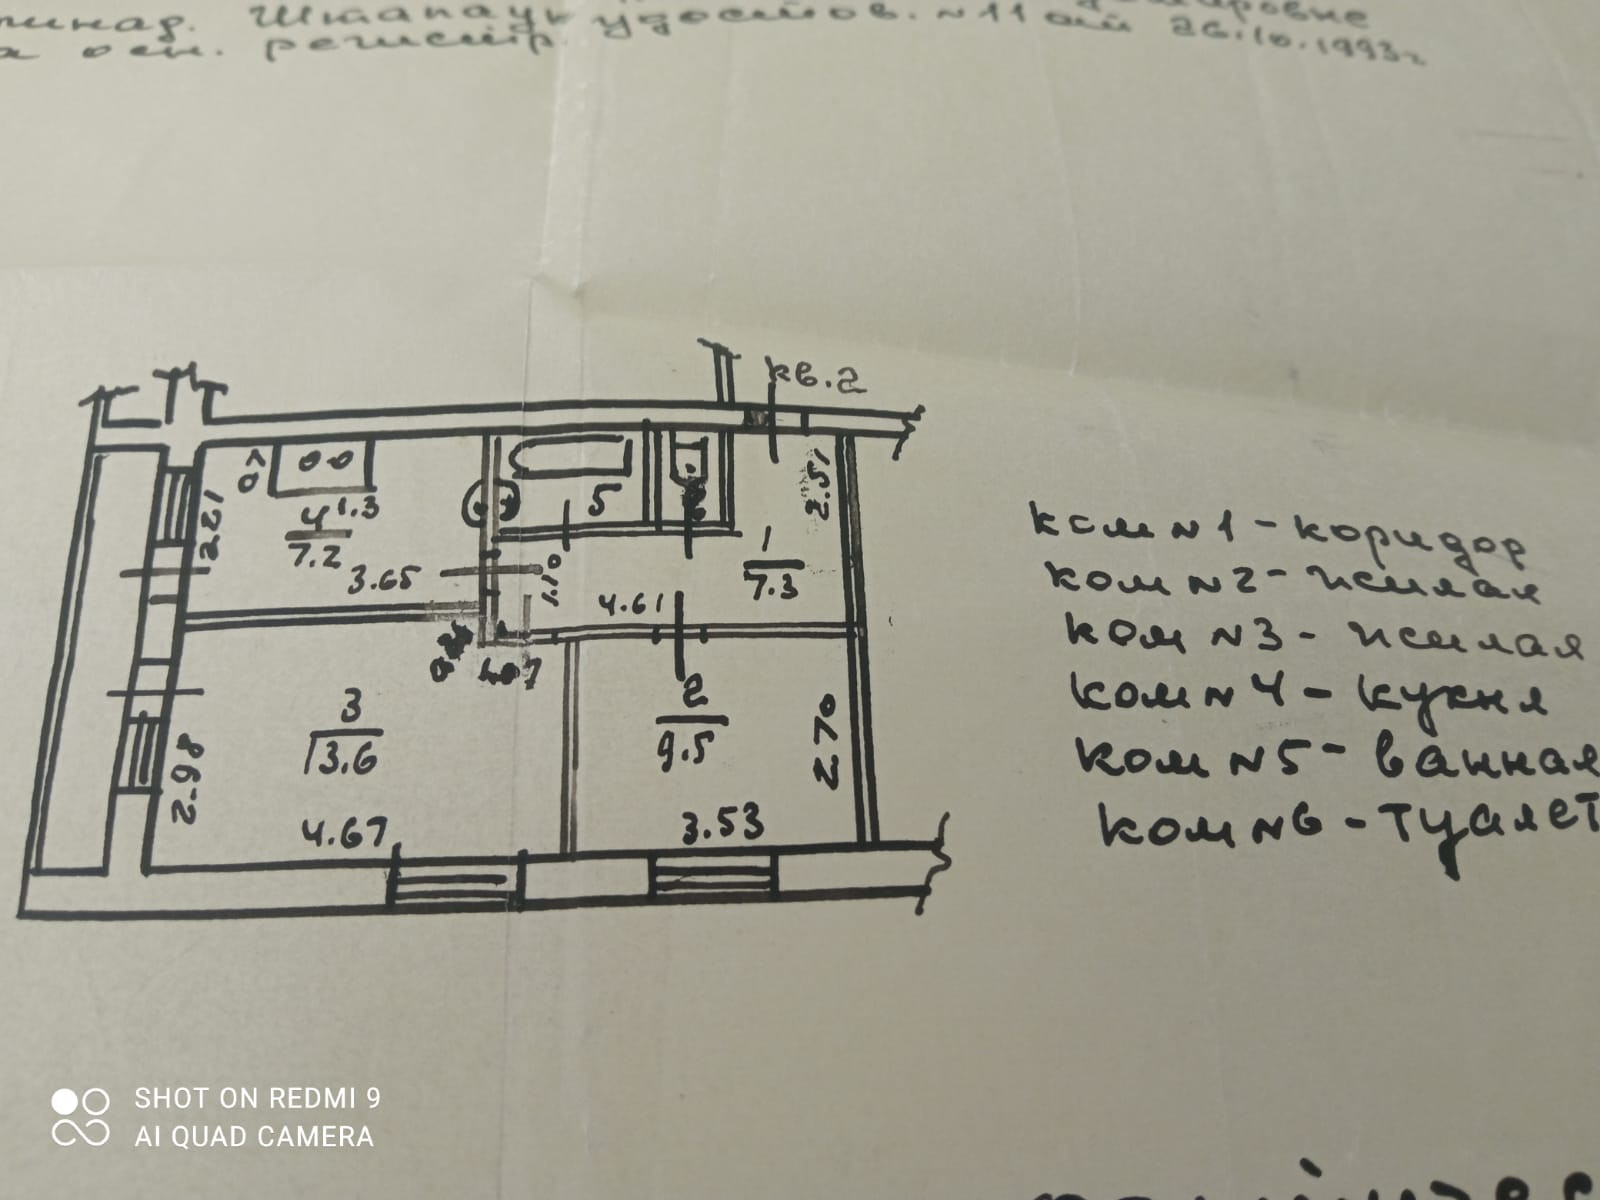 Штапаук удостов. №11 от 26.10.1993г
осн. регистр.
кв.2
0.7
1.3
4
7.2
2.21
3.65
5
2.51
1
7.3
1.10
4.61
3
13.6
2.98
4.67
2
9.5
2.70
3.53
ком №1 - коридор
ком №2 - жилая
ком №3 - жилая
ком №4 - кухня
ком №5 - ванная
ком №6 - туалет
SHOT ON REDMI 9
AI QUAD CAMERA